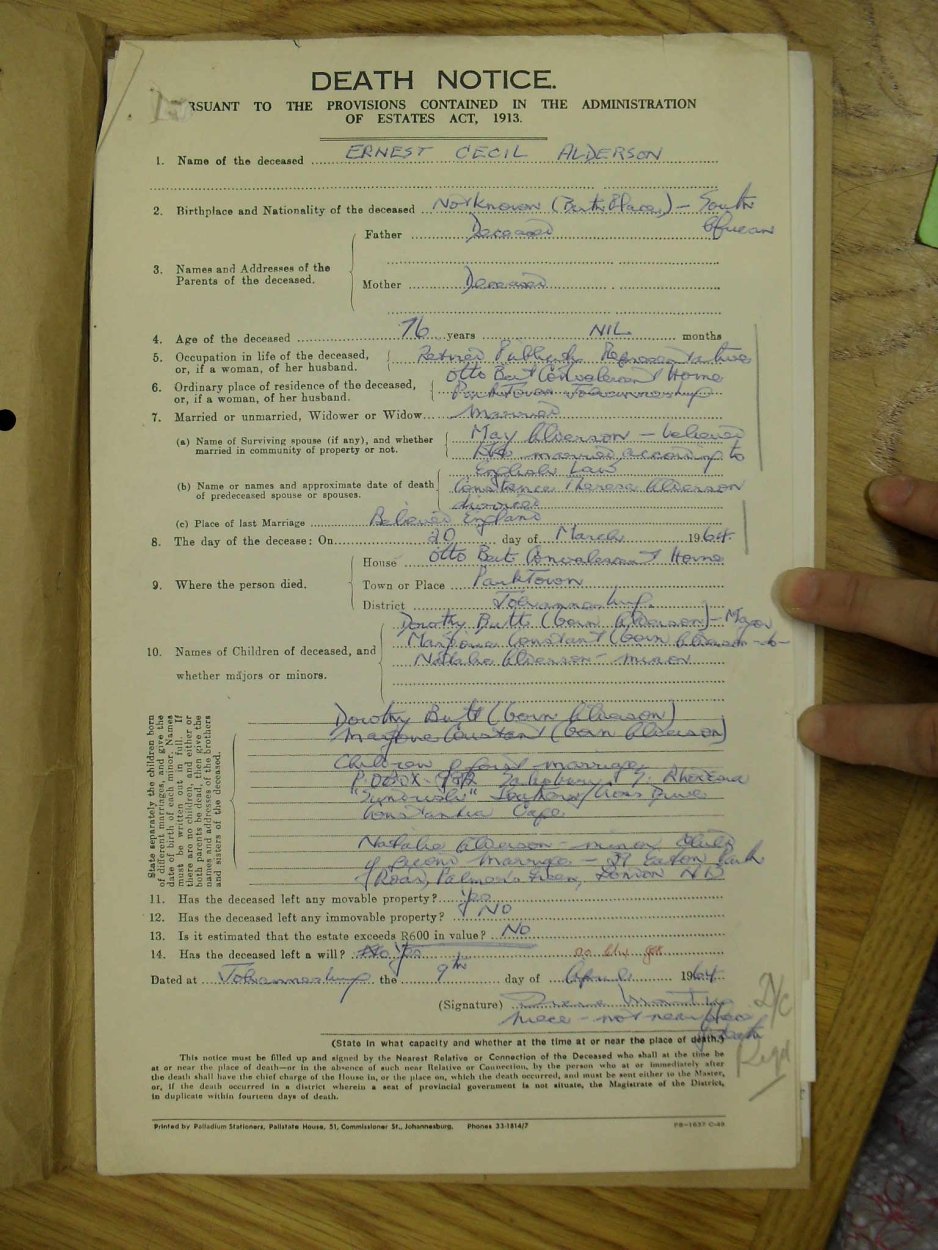 DEATH NOTICE.
RSUANT TO THE PROVISIONS CONTAINED IN THE ADMINISTRATION
OF ESTATES ACT, 1913.
1. Name of the deceased ERNEST CECIL ALDERSON
2. Birthplace and Nationality of the deceased Not Known (Birth Place) - South
African
3. Names and Addresses of the Parents of the deceased.
Father Deceased
Mother Deceased
4. Age of the deceased 76 years NIL months
5. Occupation in life of the deceased, or, if a woman, of her husband. Retired Representative
6. Ordinary place of residence of the deceased, or, if a woman, of her husband. Otto Beit Convalescent Home
Parktown Johannesburg
7. Married or unmarried, Widower or Widow Married
(a) Name of Surviving spouse (if any), and whether married in community of property or not. May Alderson - believed
married according to
English Law
(b) Name or names and approximate date of death of predeceased spouse or spouses. Constance Theresa Alderson
divorced
(c) Place of last Marriage Believed England
8. The day of the decease: On 20 day of March 1964
9. Where the person died.
House Otto Beit Convalescent Home
Town or Place Parktown
District Johannesburg.
10. Names of Children of deceased, and whether majors or minors.
Dorothy Butt (born Alderson) - Major
Marjorie Constant (born Alderson -do-
Natalie Alderson - minor
State separately the children born
of different marriages, and give the
date of birth of each minor. Names
must be written out in full. If
there are no children, and either or
both parents be dead, then give the
names and addresses of the brothers
and sisters of the deceased.
Dorothy Butt (born Alderson)
Marjorie Constant (born Alderson)
Children of first marriage
P.O. Box Salisbury S. Rhodesia
Drive
Constantia Cape
Natalie Alderson - minor child
of second marriage - 37
Road, Palmers Green, London N13
11. Has the deceased left any movable property? Yes
12. Has the deceased left any immovable property? No
13. Is it estimated that the estate exceeds R600 in value? No
14. Has the deceased left a will? No Yes
Dated at Johannesburg the 9th day of April 1964
(Signature)
Niece - not near place
of death
(State in what capacity and whether at the time at or near the place of death.)
This notice must be filled up and signed by the Nearest Relative or Connection of the Deceased who shall at the time be
at or near the place of death—or in the absence of such near Relative or Connection, by the person who at or immediately after
the death shall have the chief charge of the House in, or the place on, which the death occurred, and must be sent either to the Master,
or, if the death occurred in a district wherein a seat of provincial government is not situate, the Magistrate of the District,
in duplicate within fourteen days of death.
D/C
Regd
Printed by Palladium Stationers, Pallstate House, 51, Commissioner St., Johannesburg. Phones 33-1814/7